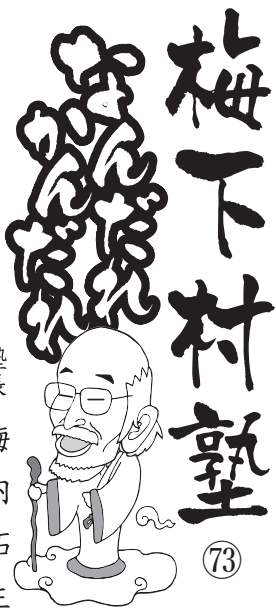 梅下村塾
73
なんだれ
かんだれ
塾長 梅内